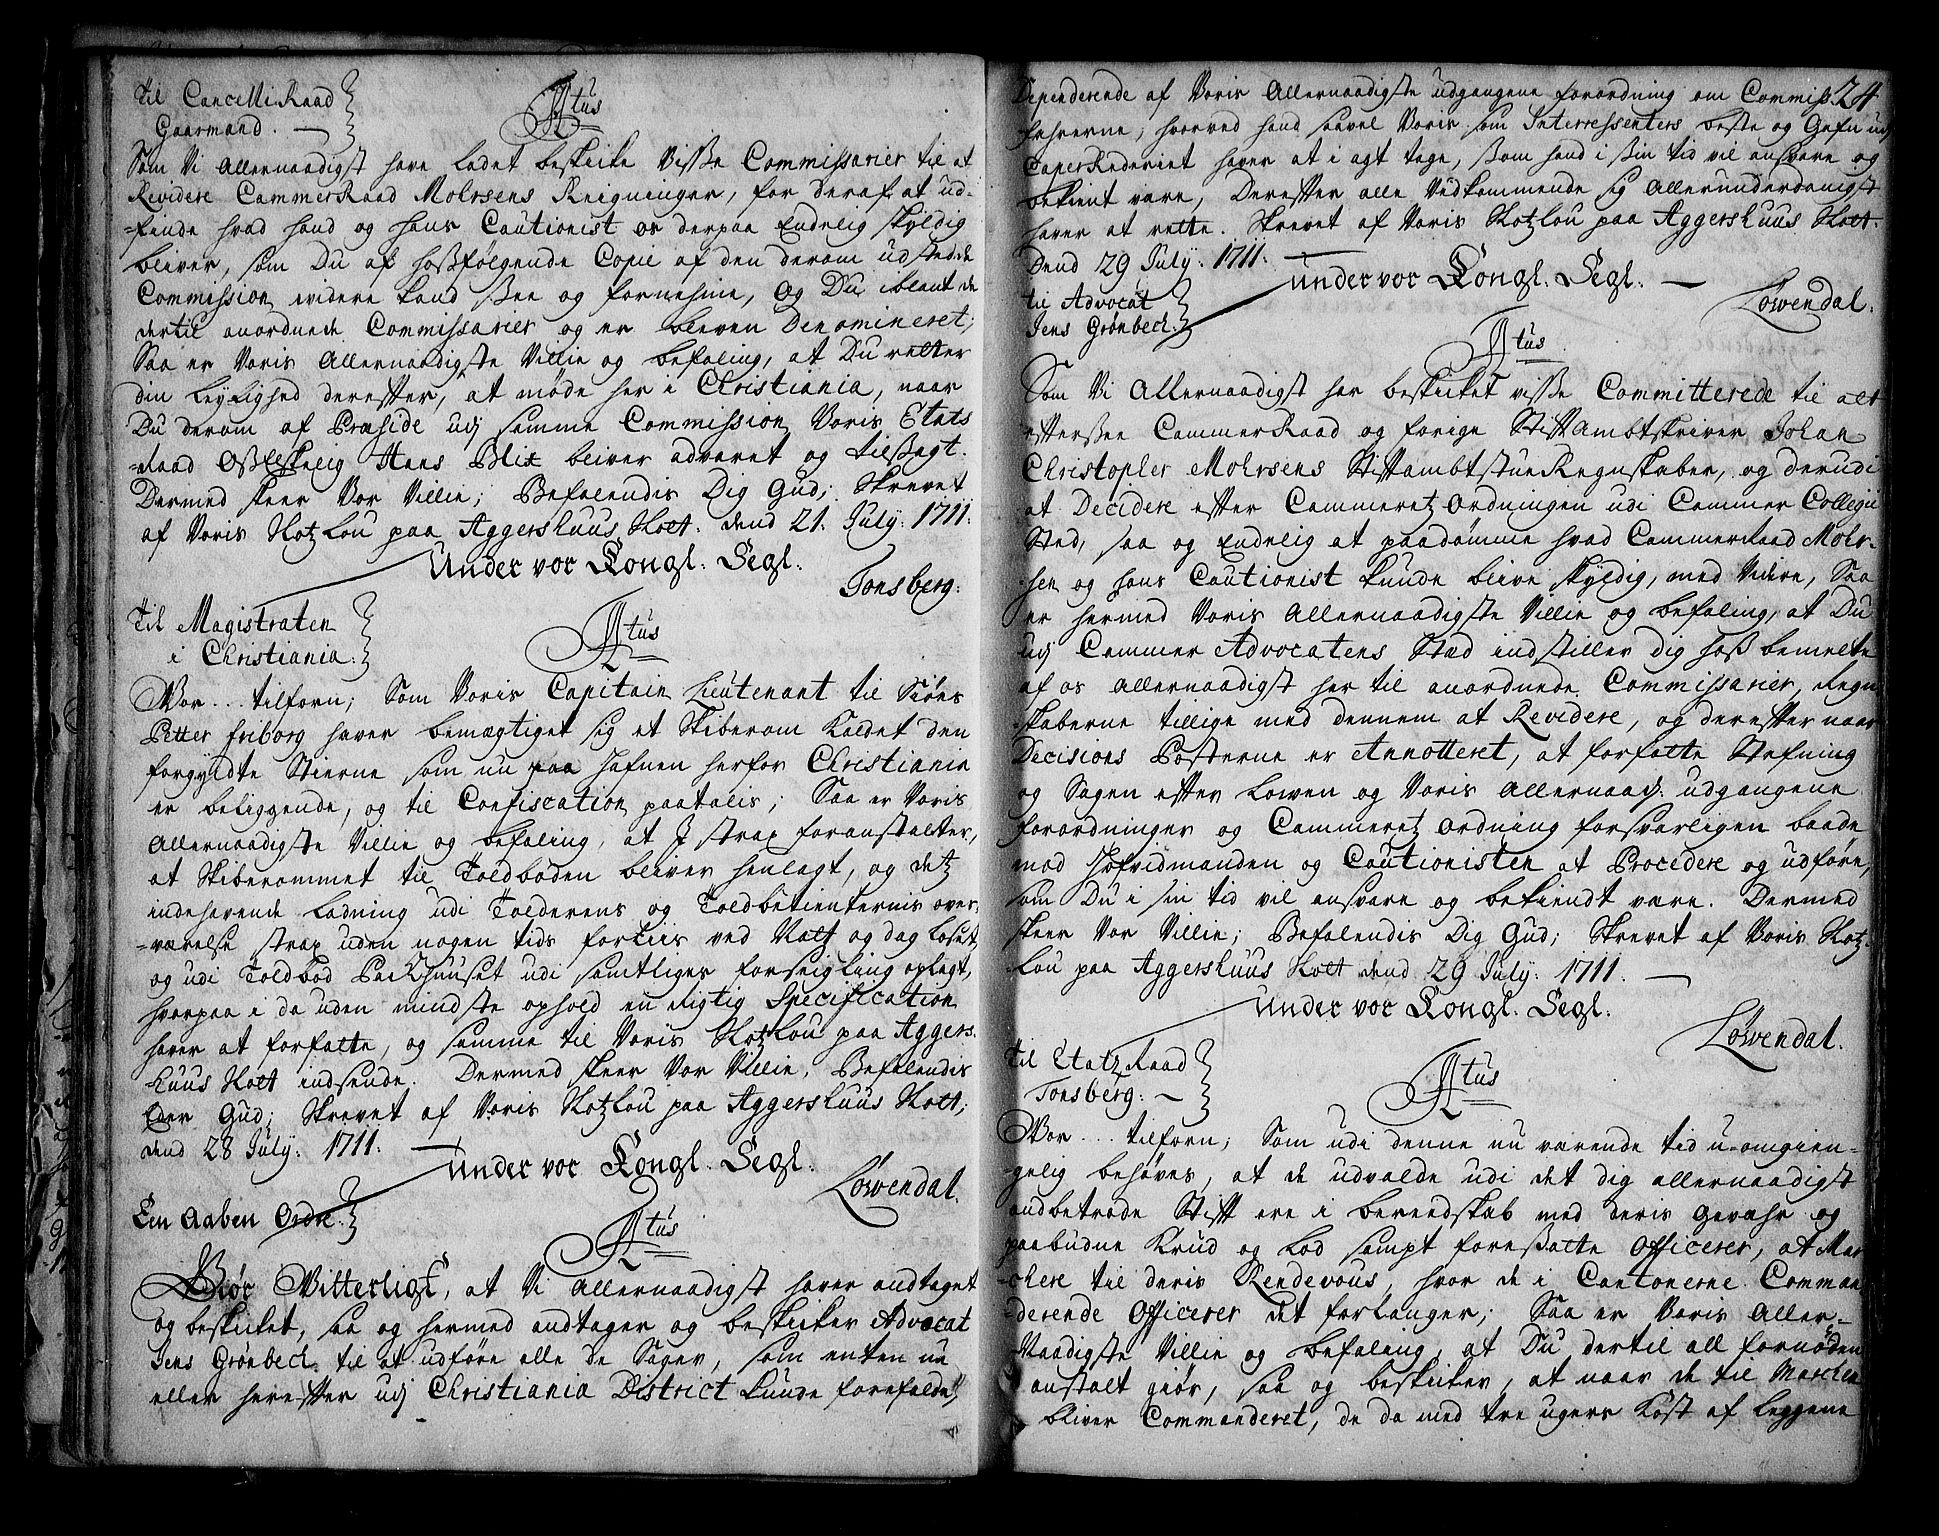 Til CancelliRaad
Gaarmand.
Atus
Som Vi Allernaadigst have ladet beskicke Visse Commissarier til at
Revidere CammerRaad Mohrsens Reigninger, for deraf at ud-
-finde hvad hand og hans Cautionist os derpaa Endelig skyldig
bliver, som Du af hoßfølgende Copie af den derom udstede
Commission videre kand see og fornehme, og Du iblant de
dertil anordnede Commissarier og er bleven Denomineret;
Saa er Voris Allernaadigste Villie og befaling, at Du retter
din Leylighed derefter, at møde her i Christiania, naar
Du derom af Præside udj samme Commission Voris Etats
-Raad Oßelskelig Hans Blix bliver advaret og tilsagt.
Dermed skeer Vor Villie; Befalendis Dig Gud; Skrevet
af Voris Slotzlou paa Aggershuus Slott. dend 21. July: 1711.
Under vor Kongl. Segl.
Tonsberg:
Til Magistraten
i Christiania.
Atus
Vor... tilforn; Som Voris Capitain Lieutenant til Siøes
Petter Friborg haver bemægtiget sig et Skiberom kaldet den
forgyldte Stierne som nu paa hafnen herfor Christiania
er beliggende, og til Confiscation paatalis; Saa er Voris
Allernaadigste Villie og befaling, at I strax foranstalter,
at Skiberommet til Toldboden bliver henlagt, og detz
indehavende ladning udi Tolderens og Toldbetienternis over-
-værelse strax uden nogen tids forliis ved Natt og dag losset,
og udi Toldbod Packhuuset udi samtliges forseigling oplagt,
hvorpaa i da uden mindste ophold en rigtig Specification
haver at forfatte, og samme til Voris Slotzlou paa Aggers-
huus Slott indsende. Dermed skeer Vor Villie, Befalendis
Eder Gud; Skrevet af Voris Slotzlou paa Aggershuus Slott;
dend 28 July: 1711.
Under vor Kongl. Segl.
Løwendal.
Een Aaben Ordre.
Atus
Giør Vitterligt, at Vi Allernaadigst haver andtaget
og beskicket, saa og hermed andtager og beskicker Advocat
Jens Grønbech, til at udføre alle de Sager, som enten nu
eller herefter udj Christiania District kunde forefalde,
24
Dependerende af Voris Allernaadigste udgangene forordning om Commiss
fahrerne, hvorved hand saavel Voris som Interressenters beste og Gafn udj
CaperRederiet haver at i agt tage, som hand i sin tid vil ansvare og
bekient være, Derefter alle Vedkommende sig Allerunderdanigst
haver at rette. Skrevet af Voris Slotzlou paa Aggershuus Slott.
Dend 29 July. 1711.
Under vor Kongl. Segl.
Løwendal.
Til Advocat
Jens Grønbech.
Atus
Som Vi Allernaadigst har beskicket visse Committerede til at
eftersee CammerRaad og forige StiftAmbtskriver Johan
Christopher Mohrsens StiftambtstueRegnskaber, og derudi
at Decidere efter Cammeretz Ordningen udi Cammer Collegii
Sted, saa og Endelig at paadømme hvad CammerRaad Mohr-
-sen og hans Cautionist kunde blive skyldig, med Videre, Saa
er hermed Voris Allernaadigste Villie og befaling, at Du
udj Cammer Advocatens Stæd indstiller dig hoß bemelte
af os Allernaadigst her til anordnede Commissarier, Regn-
-skaberne tillige med dennem at Revidere, og derefter naar
Decisions Posterne er Annotteret, at forfatte Stefning
og Sagen efter Lowen og Voris Allernaad: udgangene
forordninger og Cammeretz Ordning forsvarligen baade
mod Hofvidmanden og Cautionisten at Procedere og udføre,
som Du i sin tid vil ansvare og bekiendt være. Dermed
skeer Vor Villie; Befalendis Dig Gud; Skrevet af Voris Slotz-
Lou paa Aggershuus Slott dend 29 July: 1711.
Under vor Kongl. Segl.
Løwendal.
Til EtatzRaad
Tonsberg:
Atus
Vor... tilforn; Som udi denne nu værende tid u-omgien-
gelig behøves, at de udvalde udi det dig allernaadigst
andbetrode Stift ere i bereedskab med deris Gevæhr og
paabudne Krud og Lod sampt foresatte Officerer, at Mar-
-chere til deris Rendevous, hvor de i Cantonerne Comman-
-derende Officerer det forlanger; Saa er Voris Aller-
-Naadigste Villie og befaling, at Du dertil all fornøden
anstalt giør, saa og beskicker, at naar de til Marchen
bliver Commanderet, de da med tre ugers Kost af Leggene